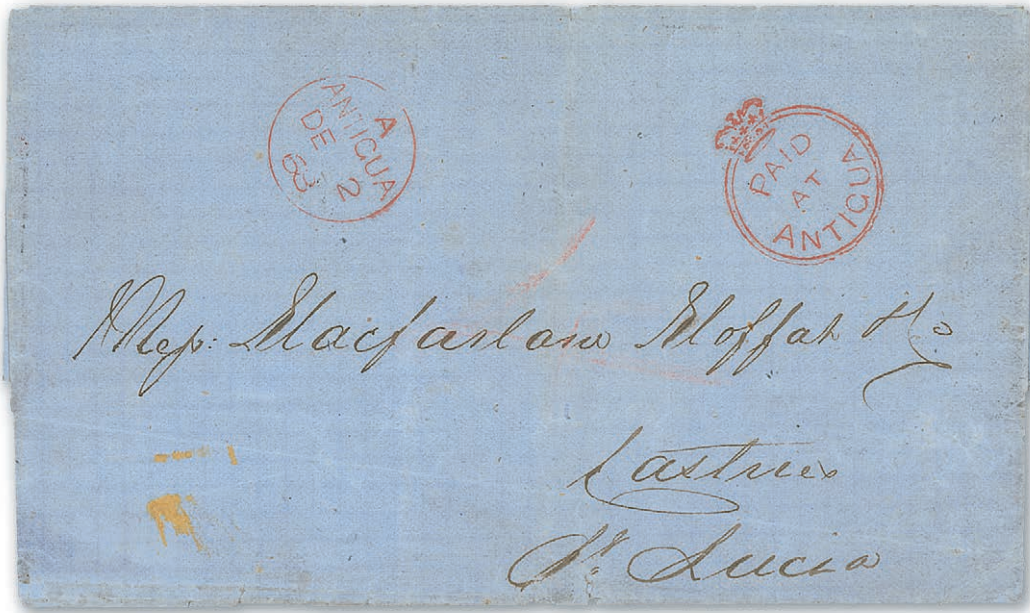 A
ANTIGUA
DE 2
63
PAID
AT
ANTIGUA
Mess: Macfarlane Moffat & Co
Castries
St. Lucia